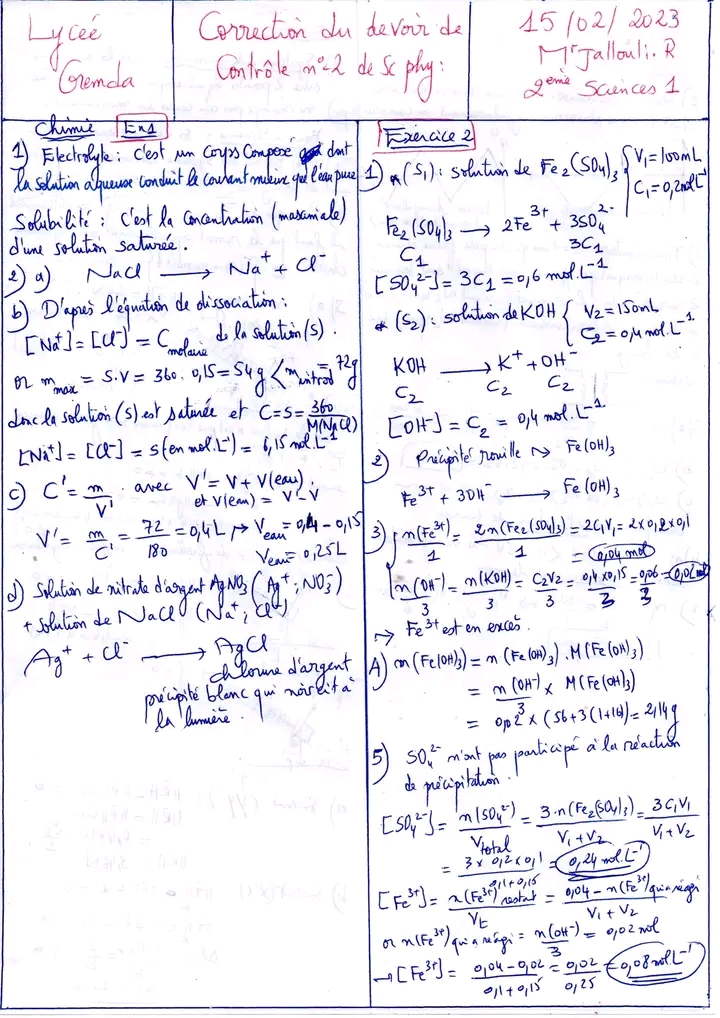 Lyceé
Gremda
Correction du devoir de
Contrôle n°2 de Sc phy:
15/02/2023
Mr Jallouli.R
2ème Sciences 1
Chimie Ex1
1) Electrolyte: c'est un corps Composé dont
la solution aqueuse conduit le courant mieux que l'eau pure
Solubilité : C'est la concentration (maximale)
d'une solution saturée.
2) a) NaCl → Na⁺ + Cl⁻
b) D'après l'équation de dissociation :
[Na⁺] = [Cl⁻] = C molaire de la solution (S).
or m max = S.V = 360. 0,15 = 54 g < m introd = 72g
donc la solution (S) est saturée et C=S= 360/M(NaCl)
[Na⁺] = [Cl⁻] = s(en mol.L⁻¹) = 6,15 mol.L⁻¹
c) C' = m/V' . avec V' = V + V(eau).
et V(eau) = V' - V
V' = m/C' = 72/180 = 0,4 L → Veau = 0,4 - 0,15
Veau = 0,25L
d) Solution de nitrate d'argent AgNO₃ (Ag⁺; NO₃⁻)
+ solution de NaCl (Na⁺; Cl⁻)
Ag⁺ + Cl⁻ → AgCl
chlorure d'argent
précipité blanc qui noircit à
la lumière.
Exercice 2
1) * (S₁): solution de Fe₂(SO₄)₃ { V₁ = 100mL
C₁ = 0,2 mol L⁻¹
Fe₂(SO₄)₃ → 2Fe³⁺ + 3SO₄²⁻
C₁ 3C₁
[SO₄²⁻] = 3C₁ = 0,6 mol.L⁻¹
* (S₂): solution de KOH { V₂ = 150mL
C₂ = 0,4 mol.L⁻¹
KOH → K⁺ + OH⁻
C₂ C₂ C₂
[OH⁻] = C₂ = 0,4 mol.L⁻¹
2) Précipité rouille → Fe(OH)₃
Fe³⁺ + 3OH⁻ → Fe(OH)₃
3) { n(Fe³⁺)/1 = 2n(Fe₂(SO₄)₃)/1 = 2C₁V₁ = 2x0,2x0,1
= 0,04 mol
n(OH⁻)/3 = n(KOH)/3 = C₂V₂/3 = 0,4x0,15/3 = 0,06/3 = 0,02 mol
→ Fe³⁺ est en excès.
4) m(Fe(OH)₃) = n(Fe(OH)₃) . M(Fe(OH)₃)
= n(OH⁻)/3 x M(Fe(OH)₃)
= 0,02 x (56+3(1+16)) = 2,14 g
5) SO₄²⁻ n'ont pas participé à la réaction
de précipitation.
[SO₄²⁻] = n(SO₄²⁻)/Vtotal = 3.n(Fe₂(SO₄)₃)/V₁+V₂ = 3C₁V₁/V₁+V₂
= 3 x 0,2 x 0,1/0,1+0,15 = 0,24 mol.L⁻¹
[Fe³⁺] = n(Fe³⁺)restant/Vt = 0,04 - n(Fe³⁺)qui a réagi/V₁+V₂
or n(Fe³⁺) qui a réagi = n(OH⁻)/3 = 0,02 mol
→ [Fe³⁺] = 0,04-0,02/0,1+0,15 = 0,02/0,25 = 0,08 mol L⁻¹